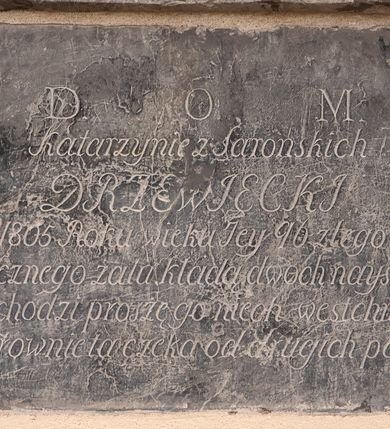 D. O. M.
Katarzynie z Saronskich
DRZEWIĘCKI
1805 Roku wieku Jey 96 złego
cznego zalu kłada dwoch nay
chodzi prosze go niech westchn
rownie ta czeka od drugich po